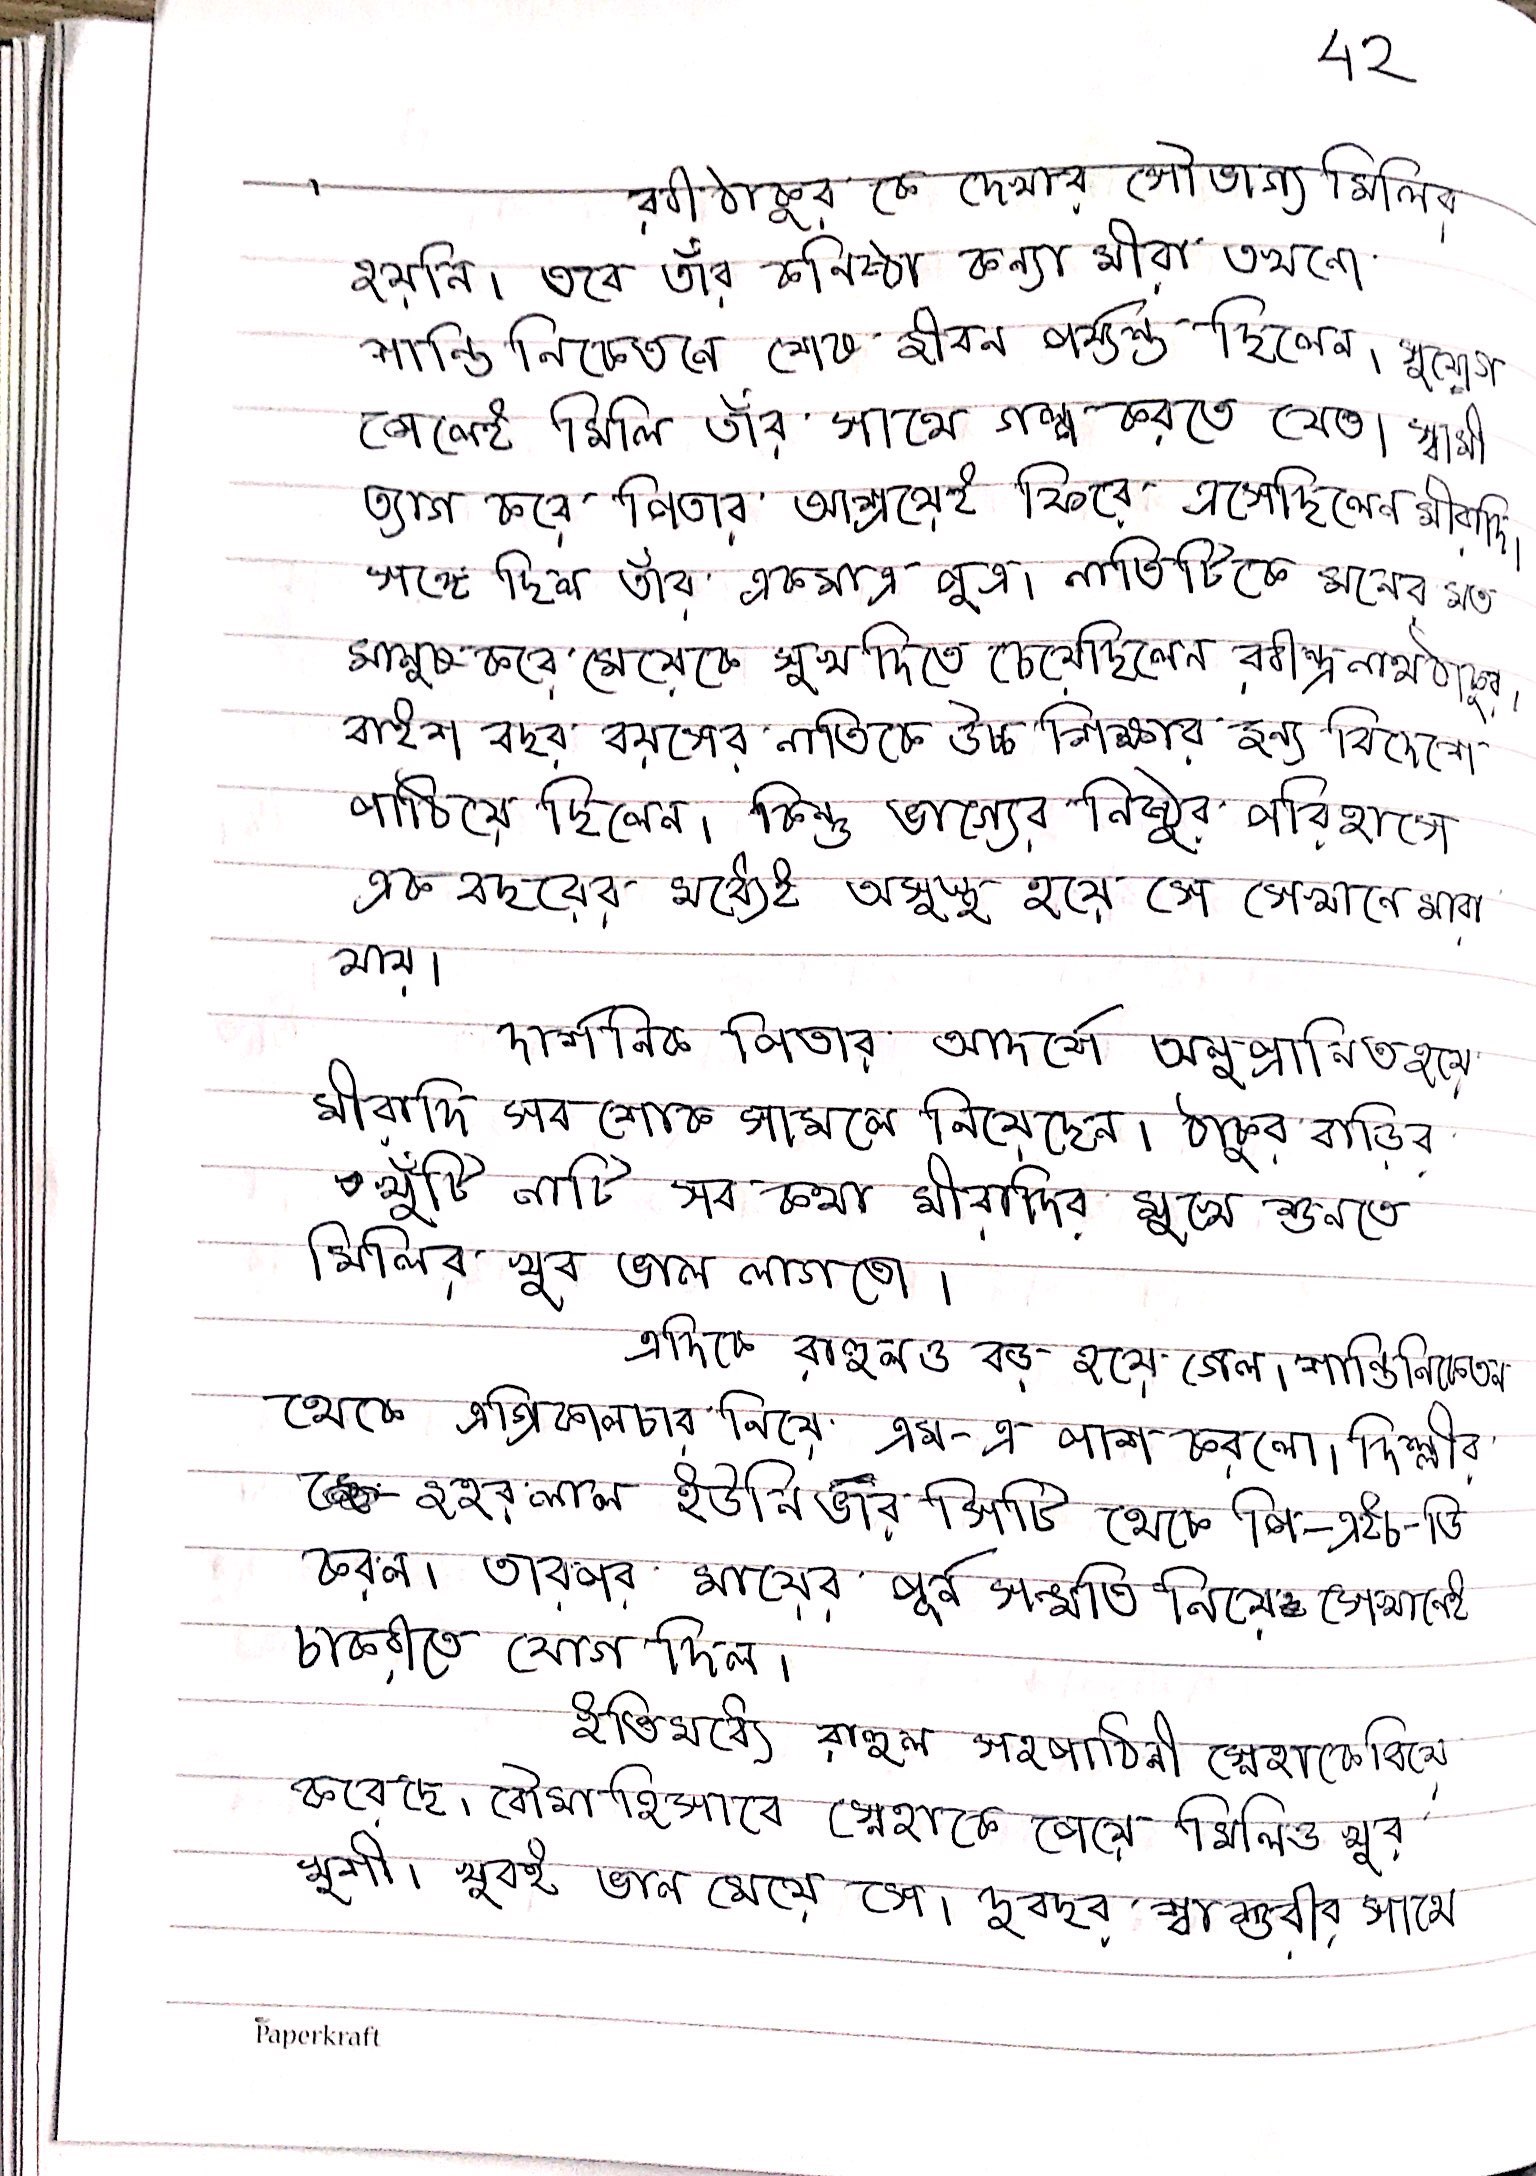 42
রবীঠাকুর কে দেখার সৌভাগ্য মিলির
হয়নি। তবে তাঁর কনিষ্ঠা কন্যা মীরা তখনো
শান্তি নিকেতনে শেষ জীবন পর্য্যন্ত ছিলেন। সুযোগ
পেলেই মিলি তাঁর সাথে গল্প করতে যেত। স্বামী
ত্যাগ করে পিতার আশ্রয়েই ফিরে এসেছিলেন মীরাদি।
সঙ্গে ছিল তাঁর একমাত্র পুত্র। নাতিটিকে মনের মত
মানুষ করে মেয়েকে সুখ দিতে চেয়েছিলেন রবীন্দ্রনাথ ঠাকুর।
বাইশ বছর বয়সের নাতিকে উচ্চ শিক্ষার জন্য বিদেশে
পাঠিয়ে ছিলেন। কিন্তু ভাগ্যের নিষ্ঠুর পরিহাসে
এক বছরের মধ্যেই অসুস্থ হয়ে সে সেখানে মারা
যায়।
দার্শনিক পিতার আদর্শে অনুপ্রানিত হয়ে
মীরাদি সব শোক সামলে নিয়েছেন। ঠাকুর বাড়ির
খুঁটি নাটি সব কথা মীরাদির মুখে শুনতে
মিলির খুব ভাল লাগতো।
এদিকে রাহুলও বড় হয়ে গেল। শান্তিনিকেতন
থেকে এগ্রিকালচার নিয়ে এম-এ পাশ করলো। দিল্লীর
জহরলাল ইউনিভার সিটি থেকে পি-এইচ-ডি
করল। তারপর মায়ের পূর্ন সম্মতি নিয়ে সেখানেই
চাকরীতে যোগ দিল।
ইতিমধ্যে রাহুল সহপাঠিনী স্নেহাকে বিয়ে
করেছে। বৌমা হিসাবে স্নেহাকে পেয়ে মিলিও খুব
খুশী। খুবই ভাল মেয়ে সে। দুবছর শ্বাশুরীর সাথে
Paperkraft